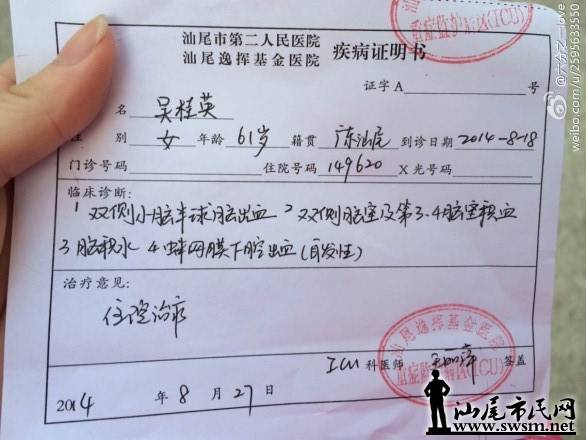 汕尾市第二人民医院
汕尾逸挥基金医院 疾病证明书
重症监护病区(ICU)
证字A 号
名 吴桂英
性别 女 年龄 61岁 籍贯 广东汕尾 到诊日期 2014-8-18
门诊号码 住院号码 149620 X光号码
临床诊断:
1 双侧小脑半球脑出血 2 双侧脑室及第3.4脑室积血
3 脑积水 4 蛛网膜下腔出血(自发性)
治疗意见:
住院治疗
汕尾逸挥基金医院
ICU 科医师 签盖
2014 年 8 月 27 日
@六分之一Love
weibo.com/u/2595633550
汕尾市民网
www.swsm.net